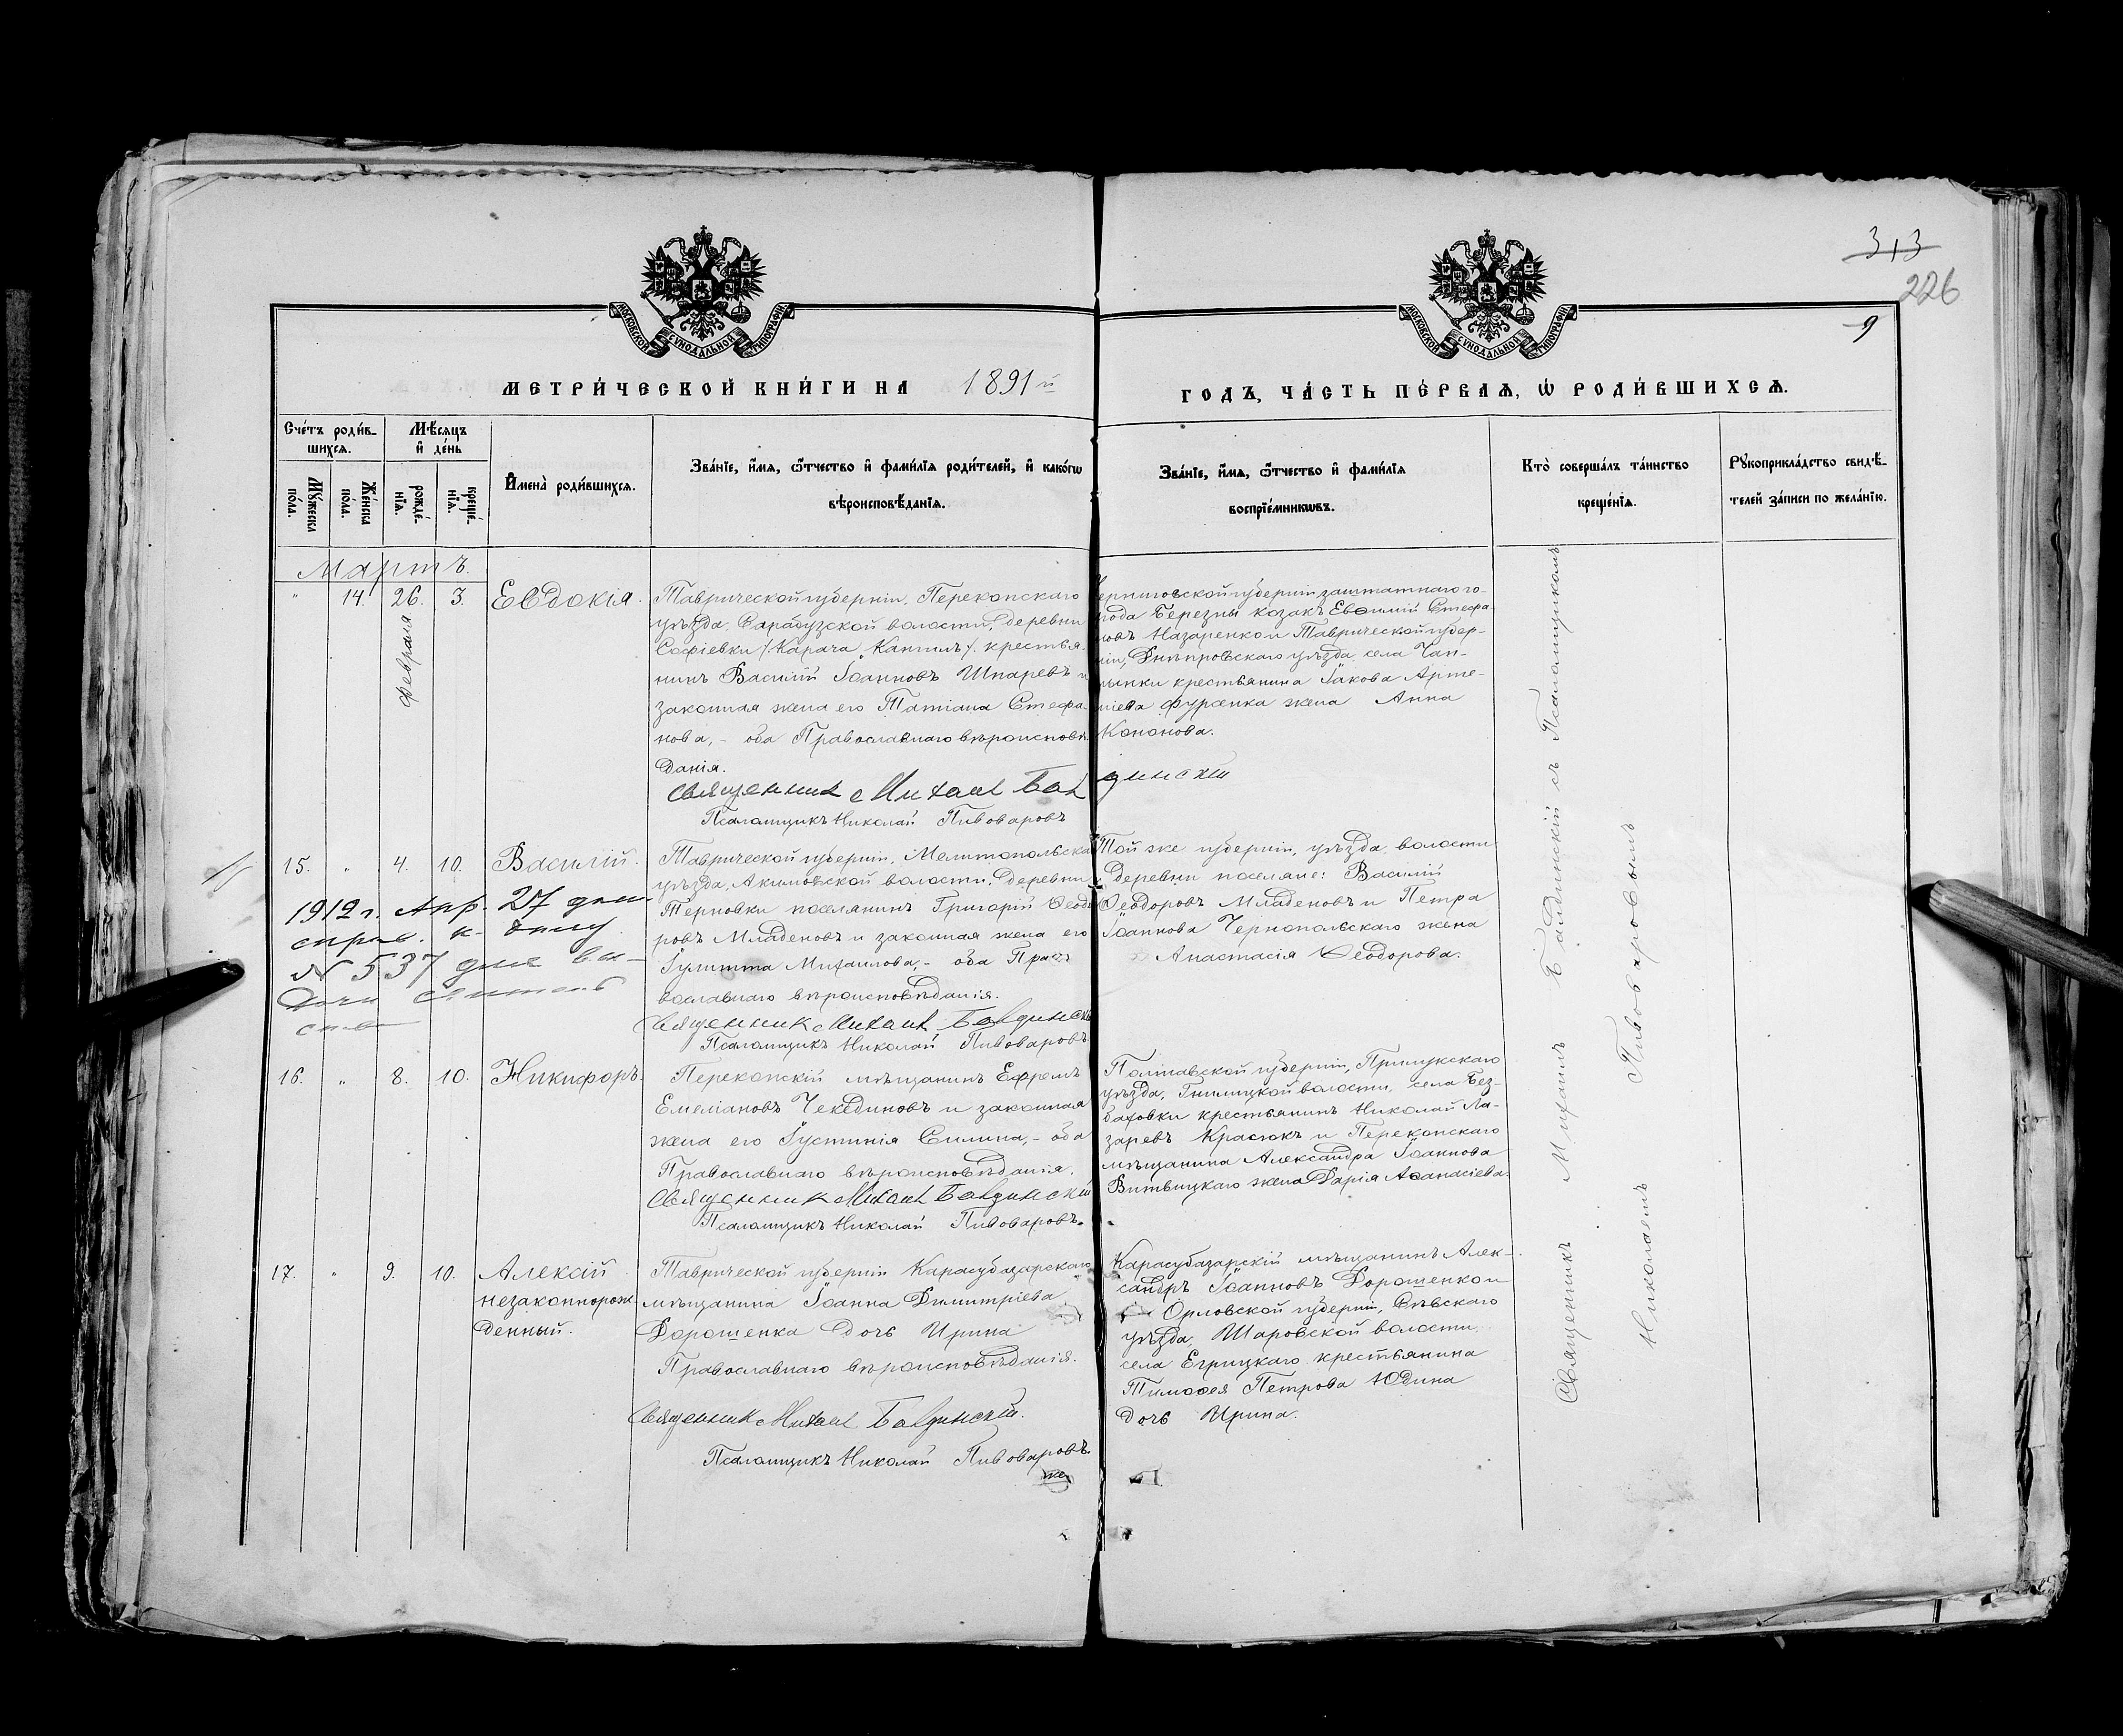 313
226
9
МОСКОВСКОЙ СУНОДАЛЬНОЙ ТИПОГРАФІИ
МОСКОВСКОЙ СУНОДАЛЬНОЙ ТИПОГРАФІИ
МЕТРИ́ЧЕСКОЙ КНИ́ГИ НА 1891 й
ГОДЪ, ЧА́СТЬ ПЕ́РВАѦ, Ѡ РОДИ́ВШИХСѦ.
Сче́тъ роди́в-
шихсѧ.
Мꙋ́жеска
по́ла.
Же́нска
по́ла.
Мѣ́сѧцъ
и҆ де́нь
рожде́-
нїѧ.
креще́-
нїѧ.
И҆мена̀ роди́вшихсѧ.
Зва́нїе, и҆́мѧ, ѻ҆́тчество и҆ фами́лїѧ роди́телей, и҆ како́гѡ
вѣроисповѣ́данїѧ.
Зва́нїе, и҆́мѧ, ѻ҆́тчество и҆ фами́лїѧ
воспрїе́мникѡвъ.
Кто̀ соверша́лъ та́инство
креще́нїѧ.
Рꙋкоприкла́дство свидѣ́-
телей за́писи по жела́нїю.
Мартъ.
" 14. 26. 3. Евдокія.
Февраля
Таврической губерніи, Перекопскаго
уѣзда, Сарабузской волости, деревни
Софіевки /Карача Кангилъ/. крестья-
нинъ Василій Іоанновъ Шпаревъ и
законная жена его Татіана Стефа-
нова, - оба Православнаго вѣроисповѣ-
данія.
Священникъ Михаилъ Баидинскій
Псаломщикъ Николай Пивоваровъ
Черниговской губерніи заштатнаго го-
рода Березны козакъ Евѳимій Стефа-
новъ Назаренко и Таврической губер-
ніи, Днѣпровскаго уѣзда, села Чап-
лынки крестьянина Іакова Арте-
міева Фурсенка жена Анна
Кононова.
15. " 4. 10. Василій.
1912 г. Апр. 27 дня
справ. к дѣлу
№ 537 для вы-
дачи
Таврической губерніи, Мелитопольска
уѣзда, Акимовской волости, деревни
Терновки поселянинъ Григорій Ѳеодо-
ровъ Младеновъ и законная жена его
Іулитта Михаилова, - оба Пра-
вославнаго вѣроисповѣданія.
Священникъ Михаилъ Баидинскій
Псаломщикъ Николай Пивоваровъ
Той же губерніи, уѣзда, волости
и деревни поселяне: Василій
Ѳеодоровъ Младеновъ и Петра
Іоаннова Чернопольскаго жена
Анастасія Ѳеодорова.
16. " 8. 10. Никифоръ.
Перекопскій мѣщанинъ Ефремъ
Емеліановъ Чекединовъ и законная
жена его Іустинія Силина, - оба
Православнаго вѣроисповѣданія.
Священникъ Михаилъ Баидинскій
Псаломщикъ Николай Пивоваровъ.
Полтавской губерніи, Прилукскаго
уѣзда, Гнилицкой волости, села Без-
баховки крестьянинъ Николай Ла-
заревъ Красюкъ и Перекопскаго
мѣщанина Александра Іоаннова
Витвицкаго жена Дарія Аѳанасіева.
17. " 9. 10. Алексій
незаконнорож-
денный.
Таврической губерніи Карасубазарскаго
мѣщанина Іоанна Димитріева
Дорошенка дочь Ирина
Православнаго вѣроисповѣданія.
Священникъ Михаилъ Баидинскій.
Псаломщикъ Николай Пивоваровъ.
Карасубазарскій мѣщанинъ Алек-
сандръ Іоанновъ Дорошенко и
Орловской губерніи, Сѣвскаго
уѣзда, Шаровской волости,
села Егрицкаго крестьянина
Тимоѳея Петрова Юдина
дочь Ирина.
Священникъ Михаилъ Баидинскій съ Псаломщикомъ
Николаемъ Пивоваровымъ